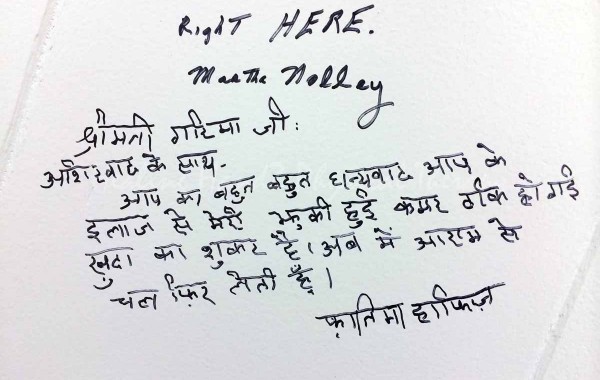 Right HERE.
Martha Nolley
श्रीमती गरिमा जी:
आशिरवाद के साथ.
आप का बहुत बहुत धन्यवाद आप के
इलाज से मेरी झुकी हुई कमर ठीक हो गई
खुदा का शुकर है। अब में आराम से
चल फिर लेती हूँ।
फ़ातिमा हाफिज़